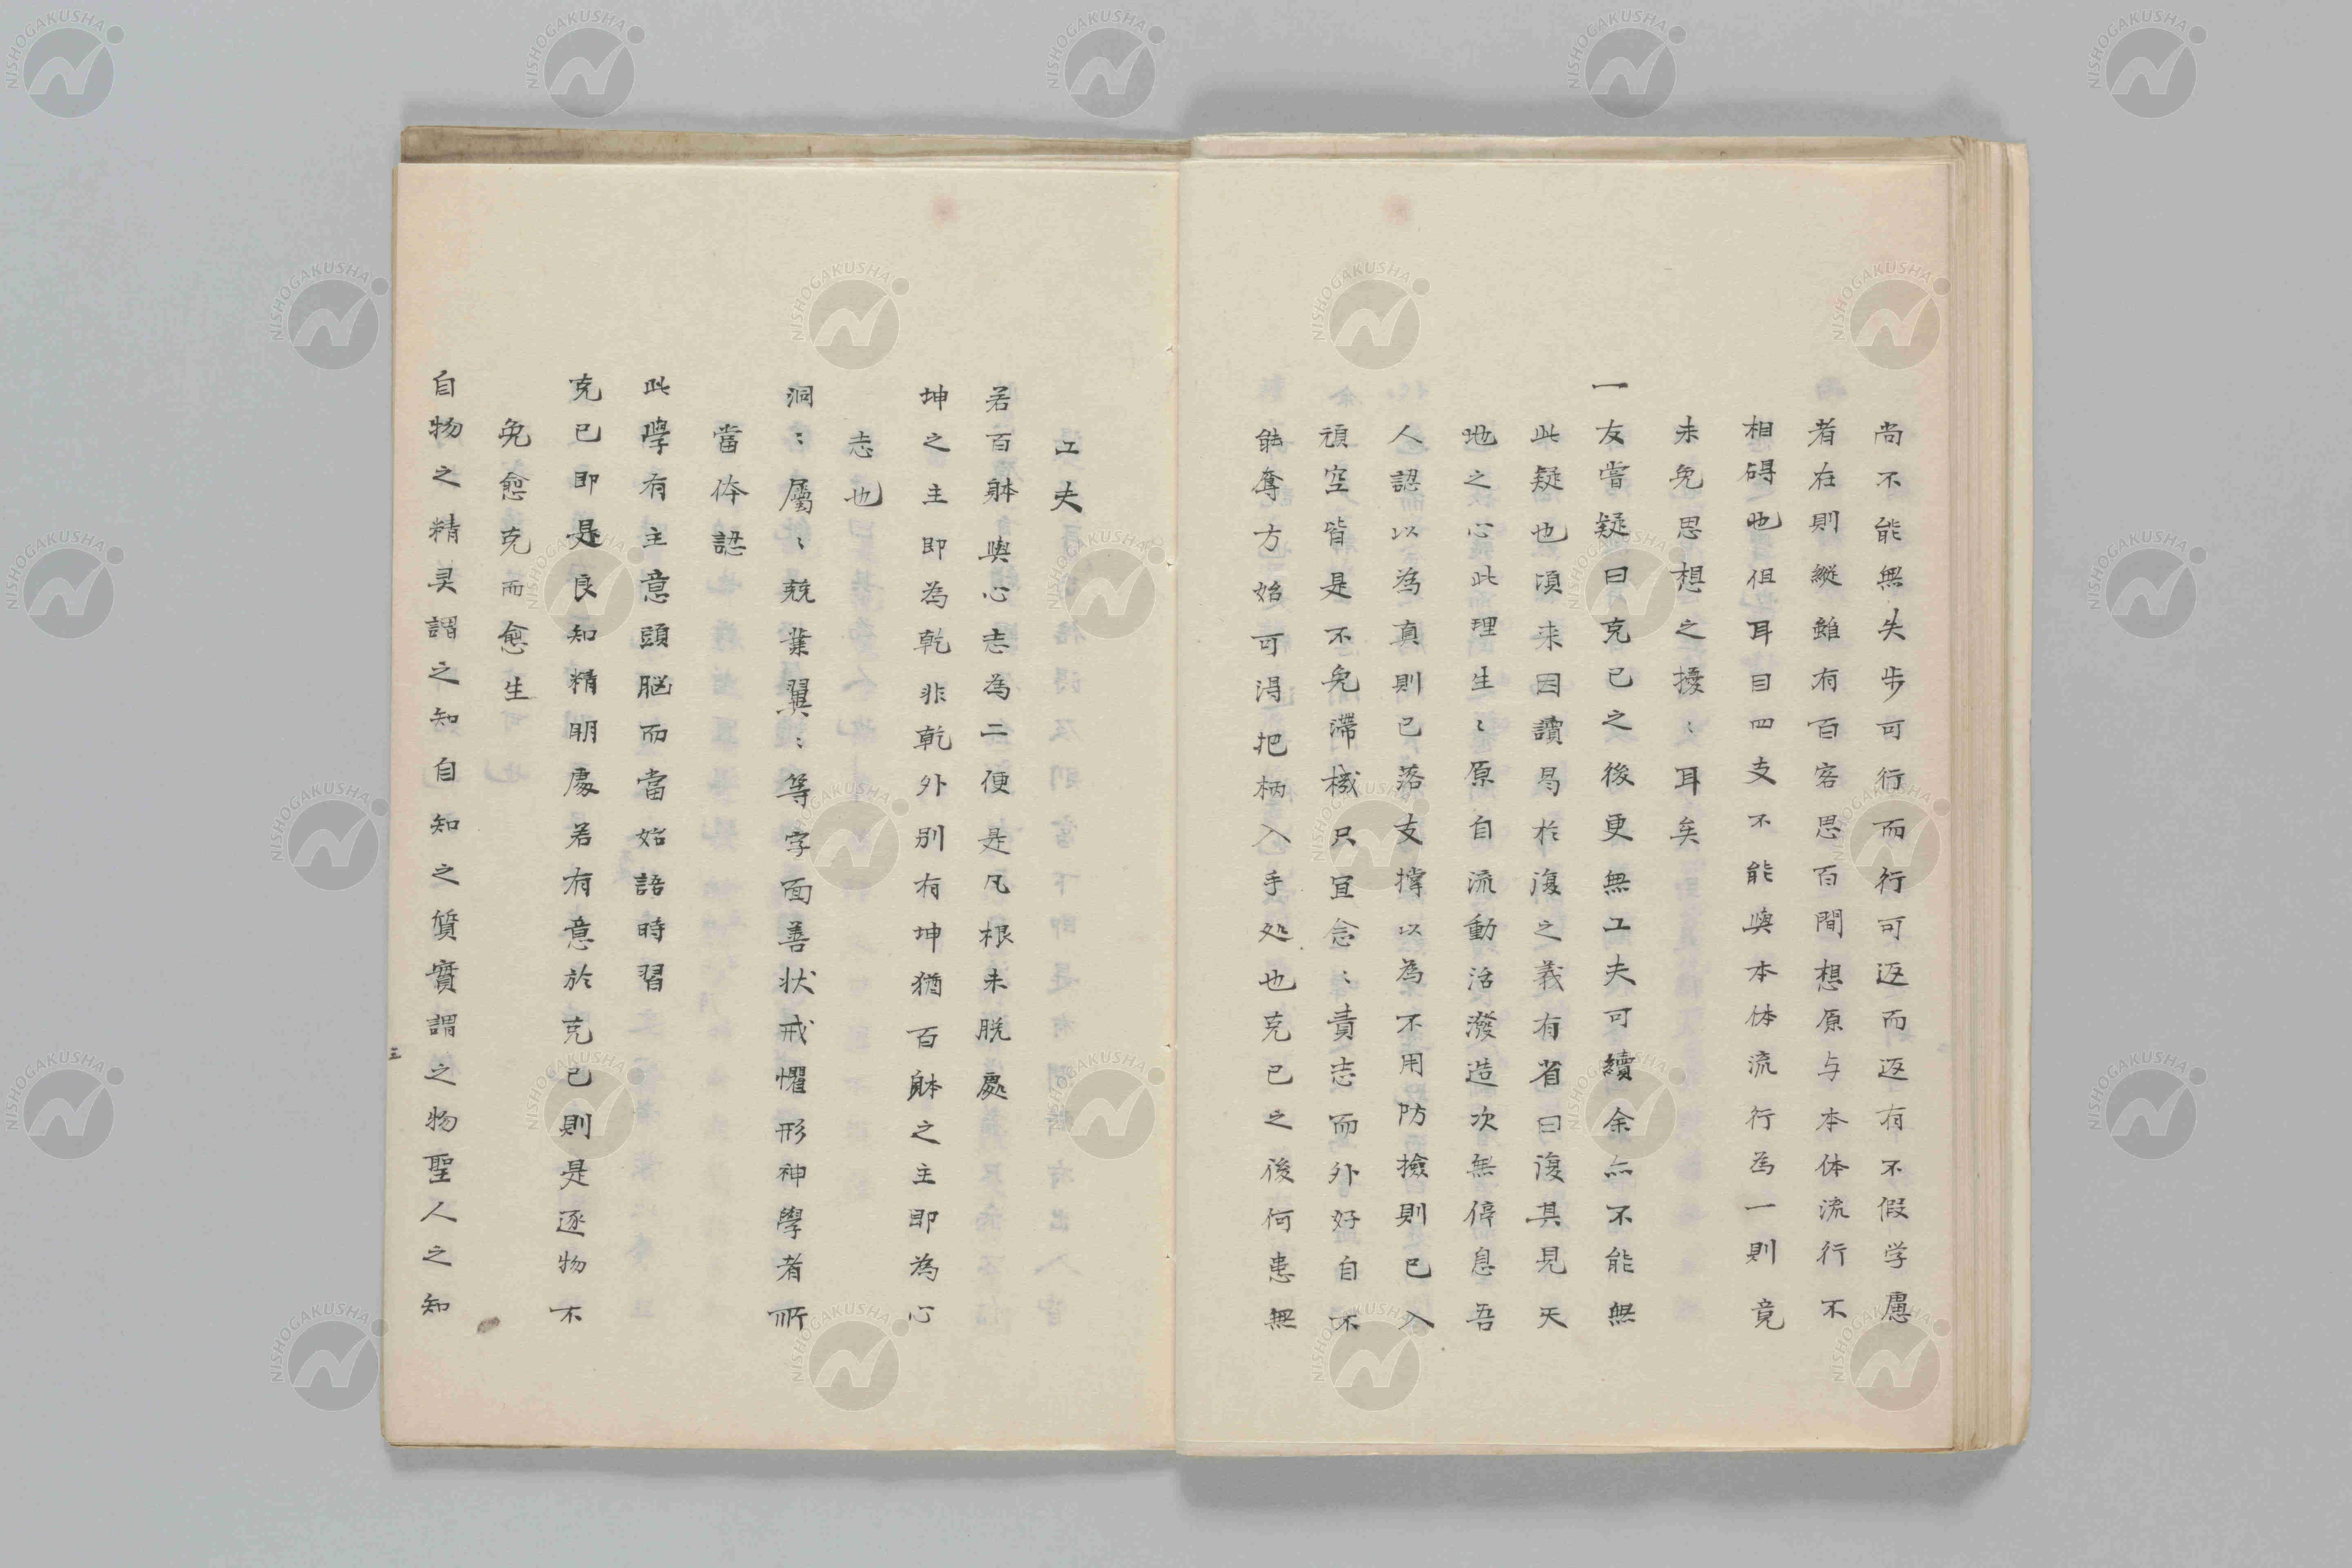 尚不能無失步可行而行可返而返有不假学慮
者在則縱雖有百客思百間想原与本体流行不
相碍也但耳目四支不能與本体流行為一則竟
未免思想之擾〻耳矣
一友嘗疑曰克己之後更無工夫可續余亦不能無
此疑也頃来因讀易於復之義有省曰復其見天
地之心此理生〻原自流動活潑造次無停息吾
人認以為真則已落支撐以為不用防撿則已入
頑空皆是不免滯機只宜念〻責志而外好自不
能奪方始可得把柄入手処也克己之後何患無
工夫
若百躰與心志為二便是凡根未脱處
坤之主即為乾非乾外別有坤猶百躰之主即為心
志也
洞〻屬〻兢業翼〻等字面善状戒懼形神學者所
當体認
此學有主意頭脳而當始語時習
克己即是良知精明處若有意於克己則是逐物不
免愈克而愈生
自物之精灵謂之知自知之質實謂之物聖人之知
三
NISHOGAKUSHA